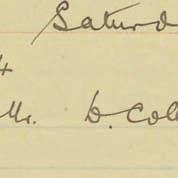 Saturd
4
Mr. D. Cole